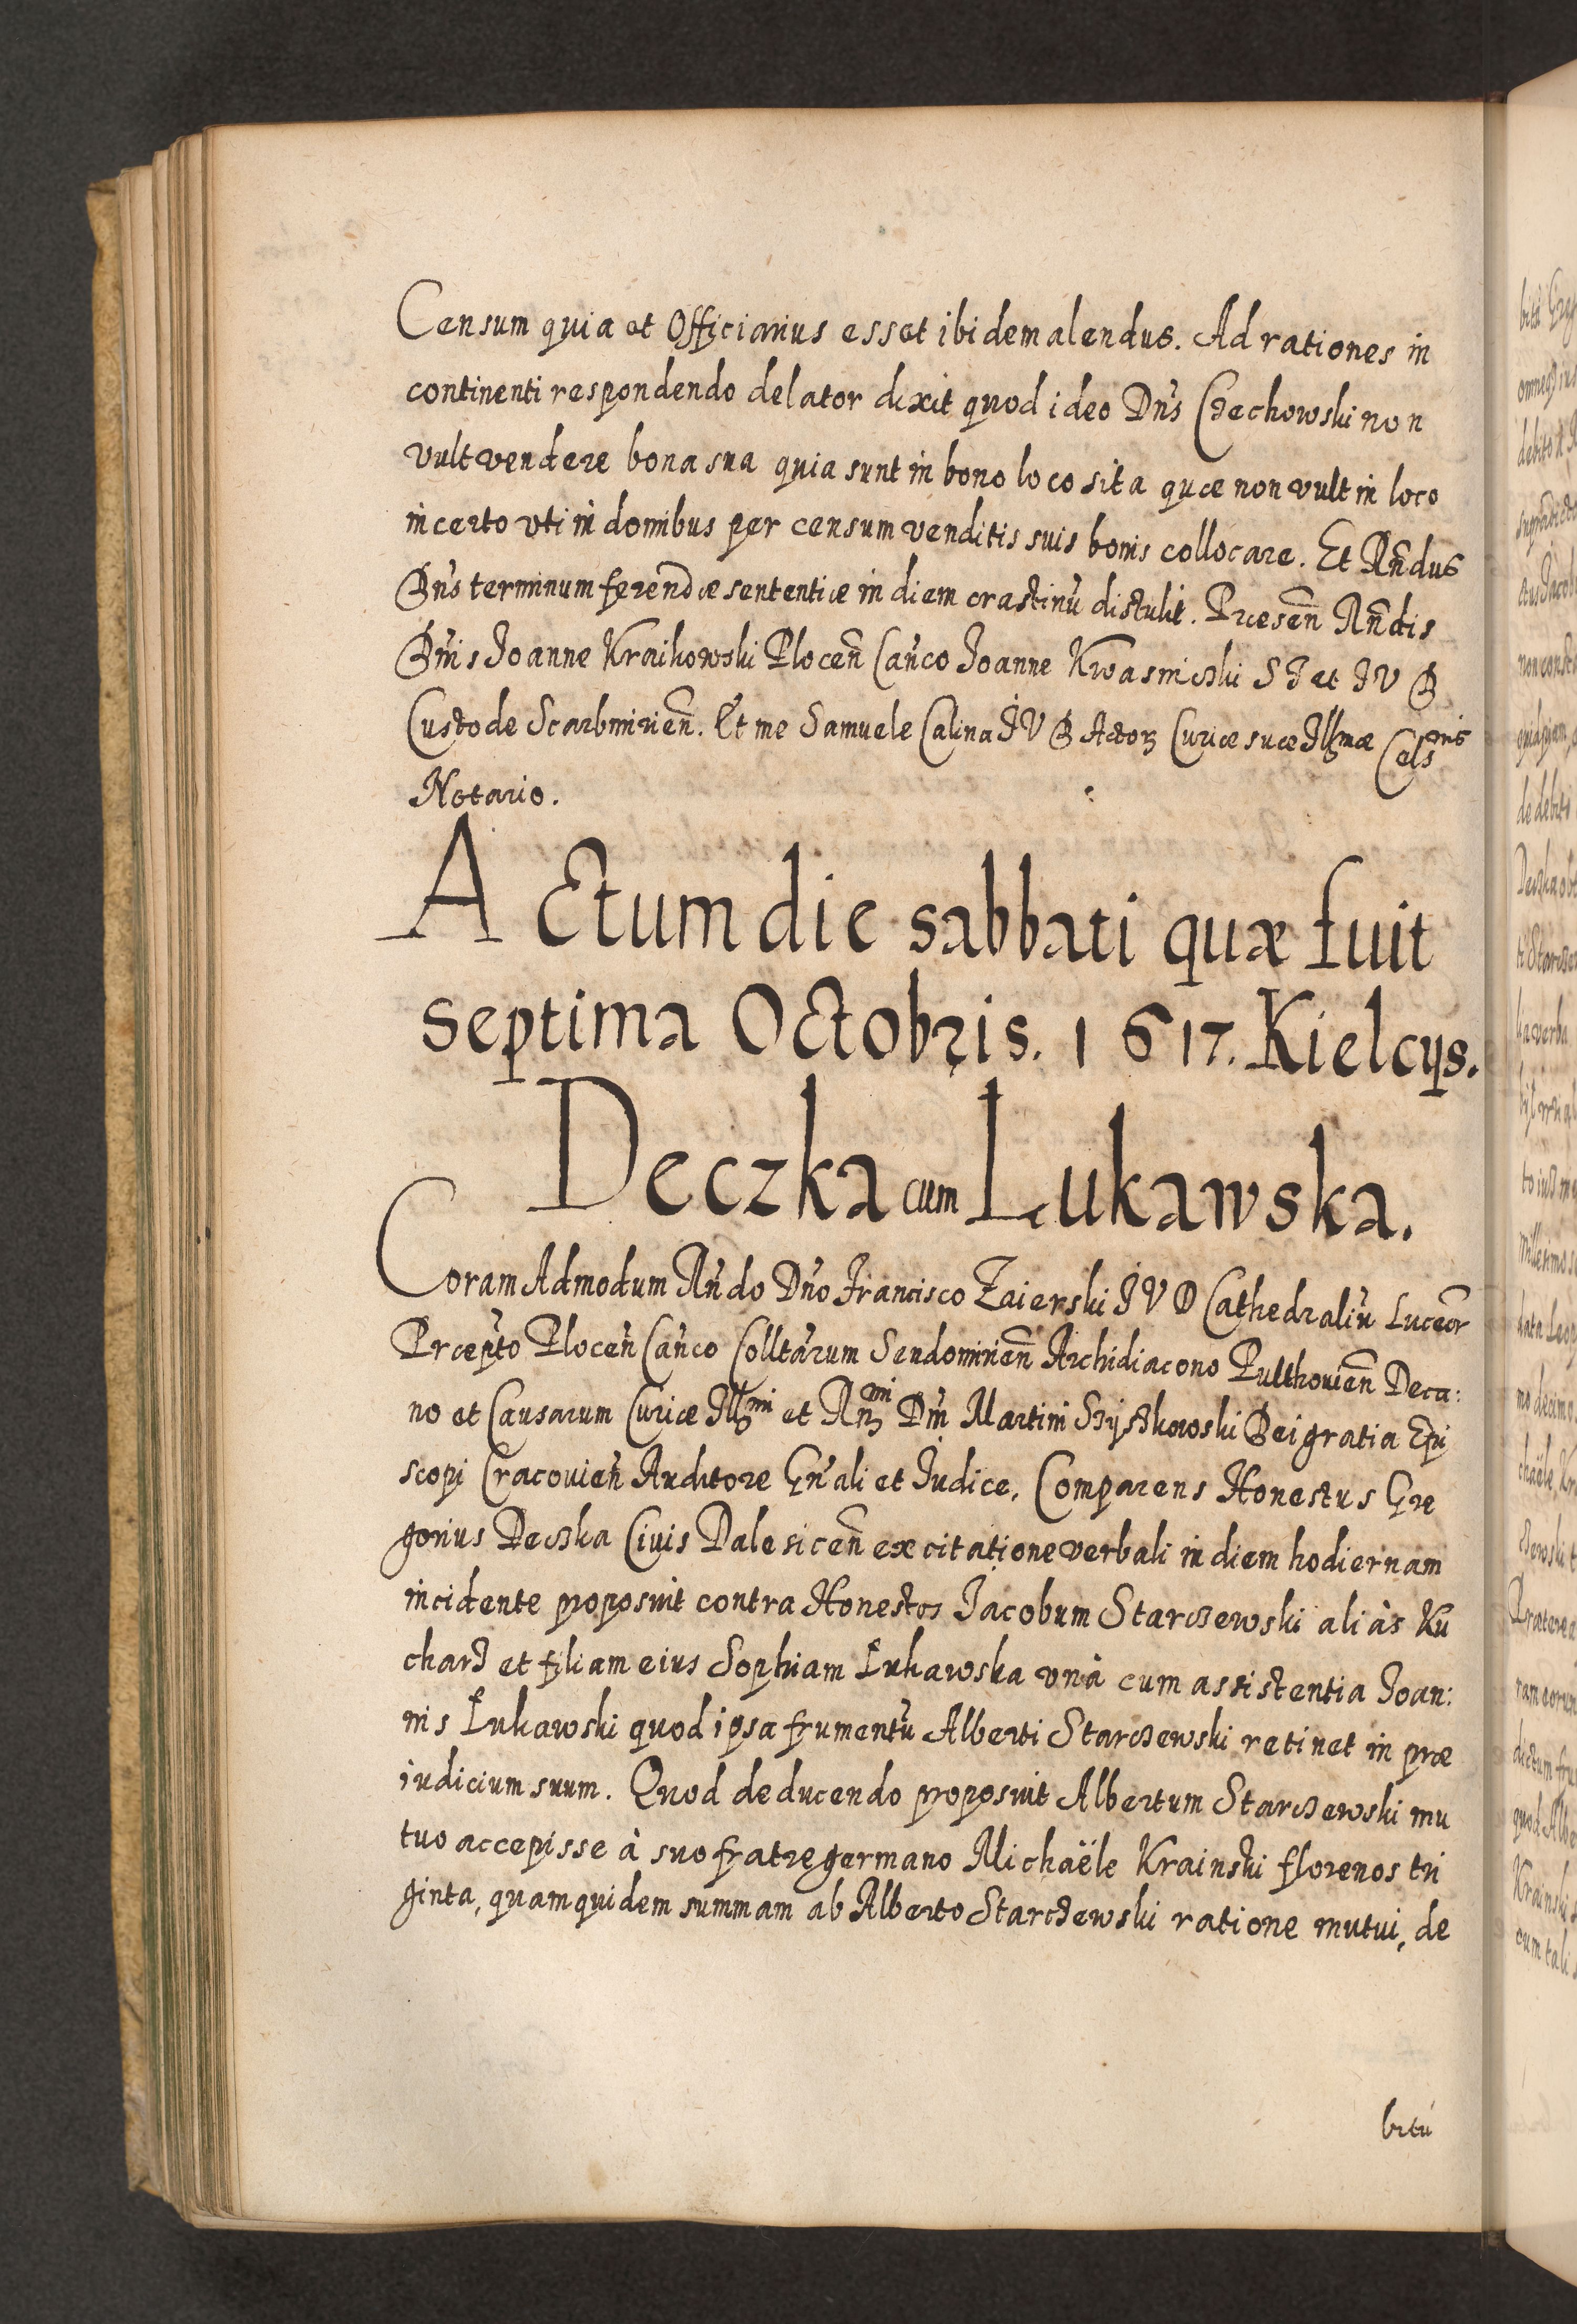 Censum quia et Officiarius esset ibidem alendus. Ad rationes in
continenti respondendo delator dixit quod ideo Dn̄s Czechowski non
vult vendere bona sua quia sunt in bono loco sita quæ non vult in loco
incerto vti in domibus per censum venditis suis bonis collocare. Et Rn̄dus
Dn̄s terminum ferendæ sententiæ in diem crastinū distulit. Præsen̄ Rn̄dis
Dn̄is Joanne Kraikowski Plocen̄ Can̄co Joanne Kwasniczki S J et J V D
Custode Scarbmirien̄. Et me Samuele Calina J V D Actoꝝ Curiæ suæ Illmæ Cels
Notario.
Actum die sabbati quæ fuit
septima Octobris. 1617. Kielcijs.
Deczka cum Lukawska.
Coram Admodum Rn̄do Dn̄o Francisco Zaierski J V D Cathedraliū Luceor
Præpt̄o Plocen̄ Can̄co Colltārum Sendomirien̄ Archidiacono Pulthovien̄ Deca:
no et Causarum Curiæ Illmi et Rmi Dn̄i Martini Szyszkowski Dei gratia Epi
scopi Cracouien̄ Auditore Gn̄ali et Judice, Comparens Honestus Gre
gorius Deczka Ciuis Dalesicen̄ ex citatione verbali in diem hodiernam
incidente proposuit contra Honestos Jacobum Starczewski aliàs Ku
charz et filiam eius Sophiam Łukawska vnà cum assistentia Joan:
nis Łukawski quod ipsa frumentū Alberti Starczewski retinet in præ
iudicium suum. Quod deducendo proposuit Albertum Starczewski mu
tuo accepisse à suo fratre germano Michaële Krainski florenos tri
ginta, quam quidem summam ab Alberto Starczewski ratione mutui, de
bitū